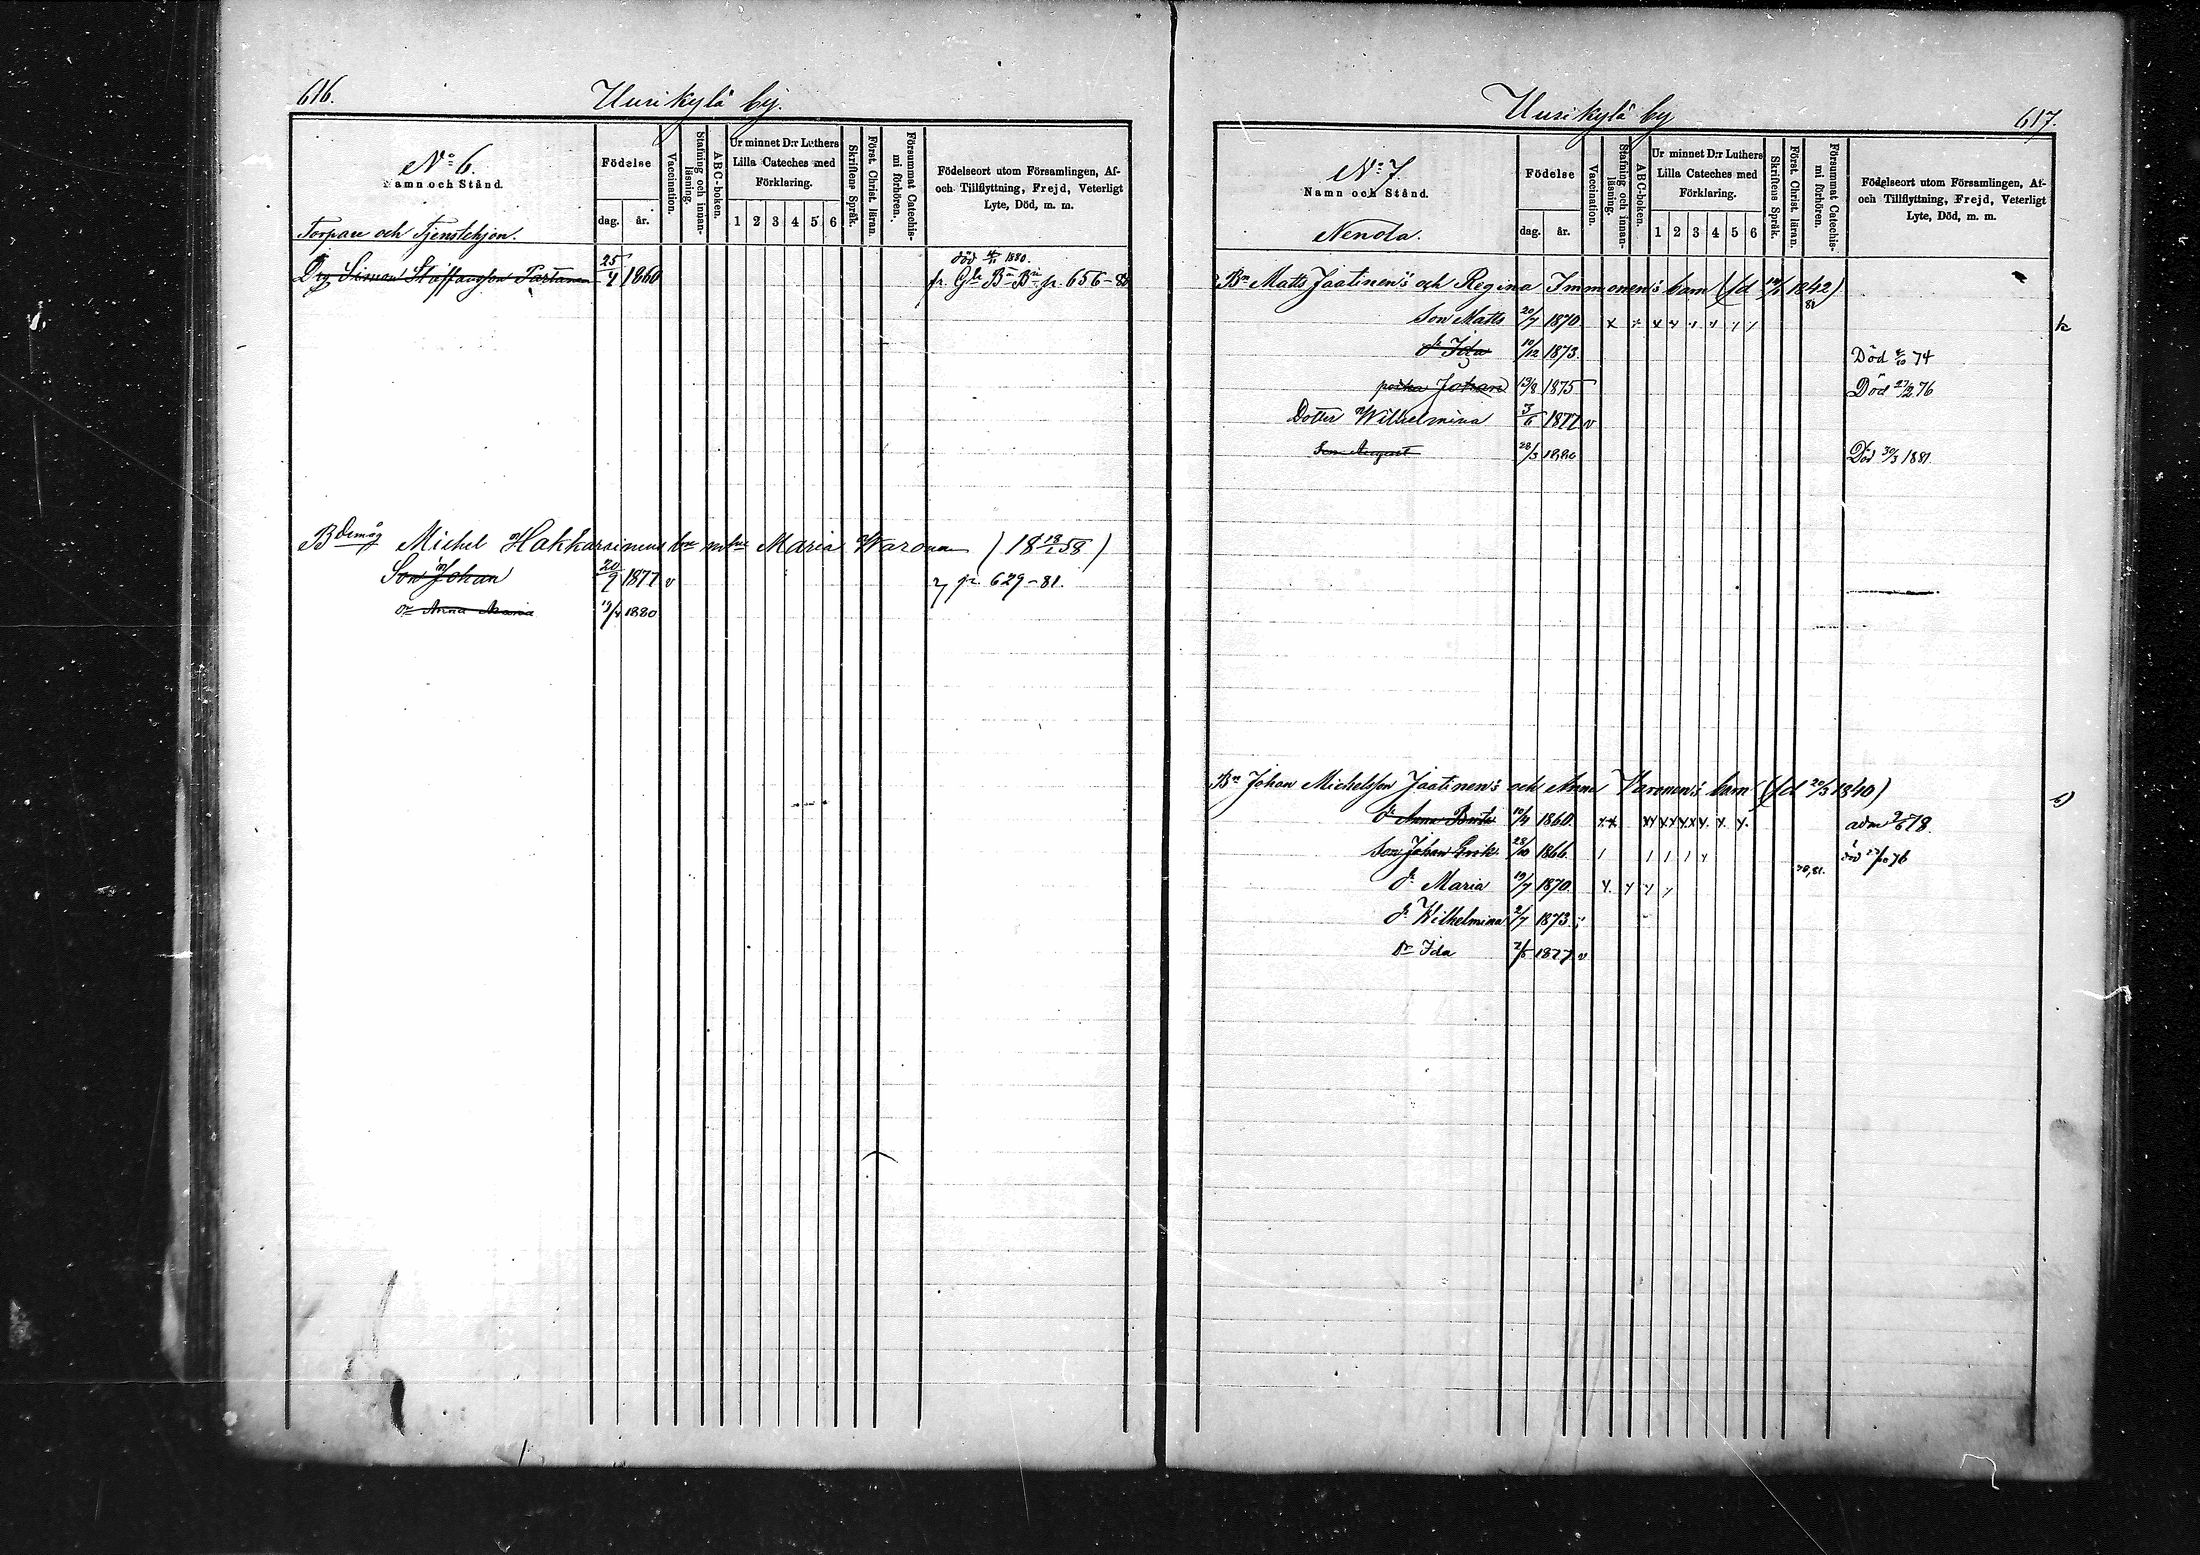 616.
Uusikylä by.
No 6.
Namn och Stånd.
Födelse
dag.
år.
Vaccination.
Stafning och innanläsning.
ABC-boken.
Ur minnet D:r Luthers
Lilla Cateches med
Förklaring.
1 2 3 4 5 6
Skriftens Språk.
Först. Christ. läran.
Försummat Catechismi förhören.
Födelseort utom Församlingen, Af-
och Tillflyttning, Frejd, Veterligt
Lyte, Död, m. m.
Torpare och Tjenstehjon.
död 1880.
Drg Simon Staffansson Partanen 25/4 1860 fr. p. 656-80
Bdemåg Michel Hakkarainens bn m hu Maria Waronen (18 18/1 58)
Son Johan 20/9 1877 v p. 629-81.
Dr Anna Maria 19/4 1880
Uusikylä by
617.
No 7.
Namn och Stånd.
Födelse
dag.
år.
Vaccination.
Stafning och innanläsning.
ABC-boken.
Ur minnet D:r Luthers
Lilla Cateches med
Förklaring.
1 2 3 4 5 6
Skriftens Språk.
Först. Christ. läran.
Försummat Catechismi förhören.
Födelseort utom Församlingen, Af-
och Tillflyttning, Frejd, Veterligt
Lyte, Död, m. m.
Nenola.
Bn Matts Jaatinen's och Regina Immonen's barn (fd 1842)
Son Matts 20/7 1870 x
dr Ida 10/12 1873. Död 74
poika Johan 13/8 1875 Död 27/2 76
Dotter Wilhelmina 3/6 1877 v
Son August 28/3 1880 Död 30/3 1881
Bn Johan Michelsson Jaatinen's och Anna Waronen's barn (fd 20/3 1840)
dr Anna Brita 10/4 1860. adm 78.
Son Johan Erik 28/10 1866. död 76
dr Maria 19/7 1870.
dr Wilhelmina 2/7 1873
Dr Ida 2/5 1877 v